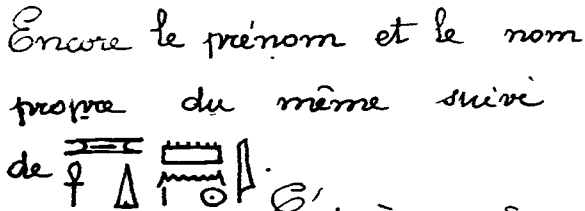 Encore le prénom et le nom
propre du même suivi
de